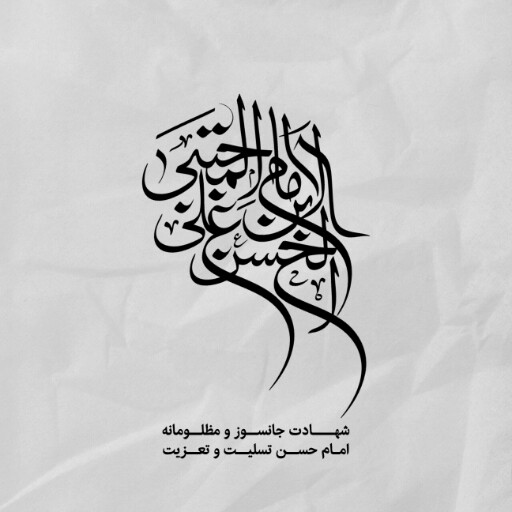 الإمام المجتبی
الحسن بن علی
شهادت جانسوز و مظلومانه
امام حسن تسلیت و تعزیت